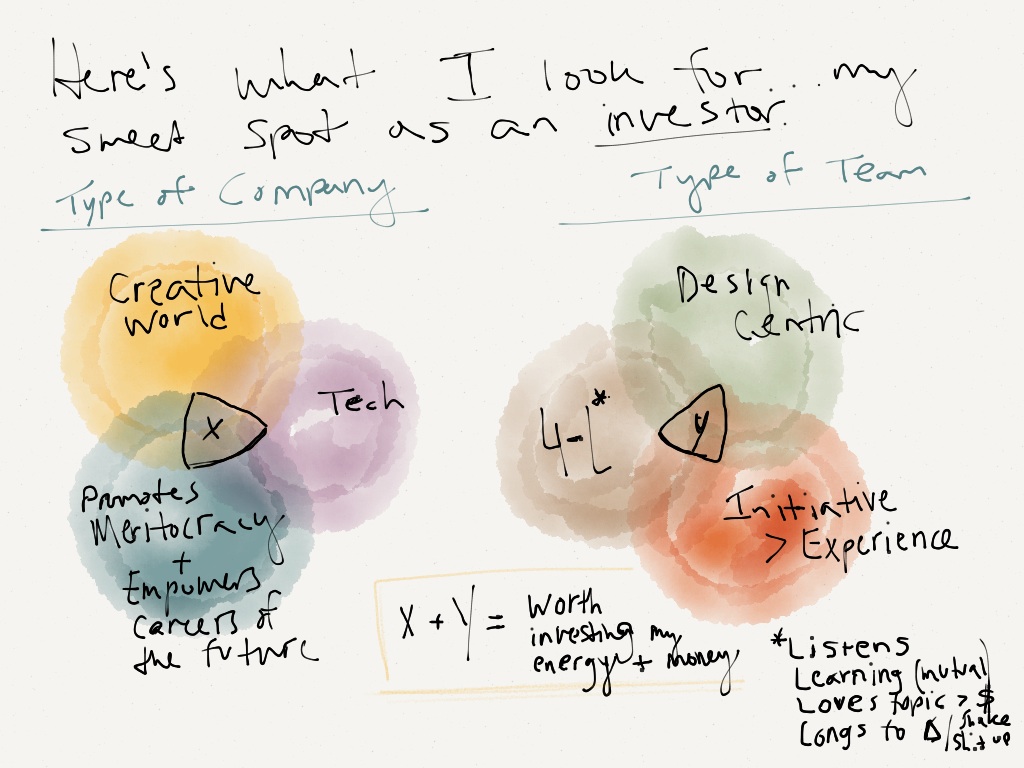 Here's what I look for... my
sweet spot as an investor.
Type of Company
Type of Team
Creative
World
Tech
X
Promotes
Meritocracy
+
Empowers
careers of
the future
Design
Centric
4-L*
Y
Initiative
> Experience
X + Y = Worth
investing my
energy + money
*Listens
Learning (mutual)
Loves topic > $
Longs to Δ/shake
shit up